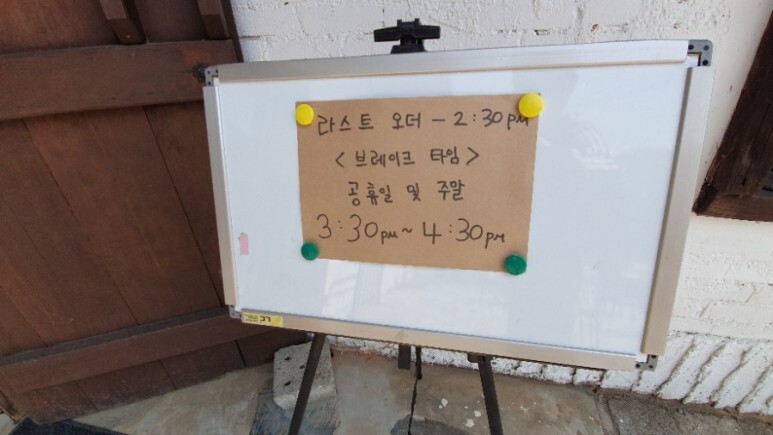 라스트 오더 - 2:30pm
<브레이크 타임>
공휴일 및 주말
3:30pm ~ 4:30pm